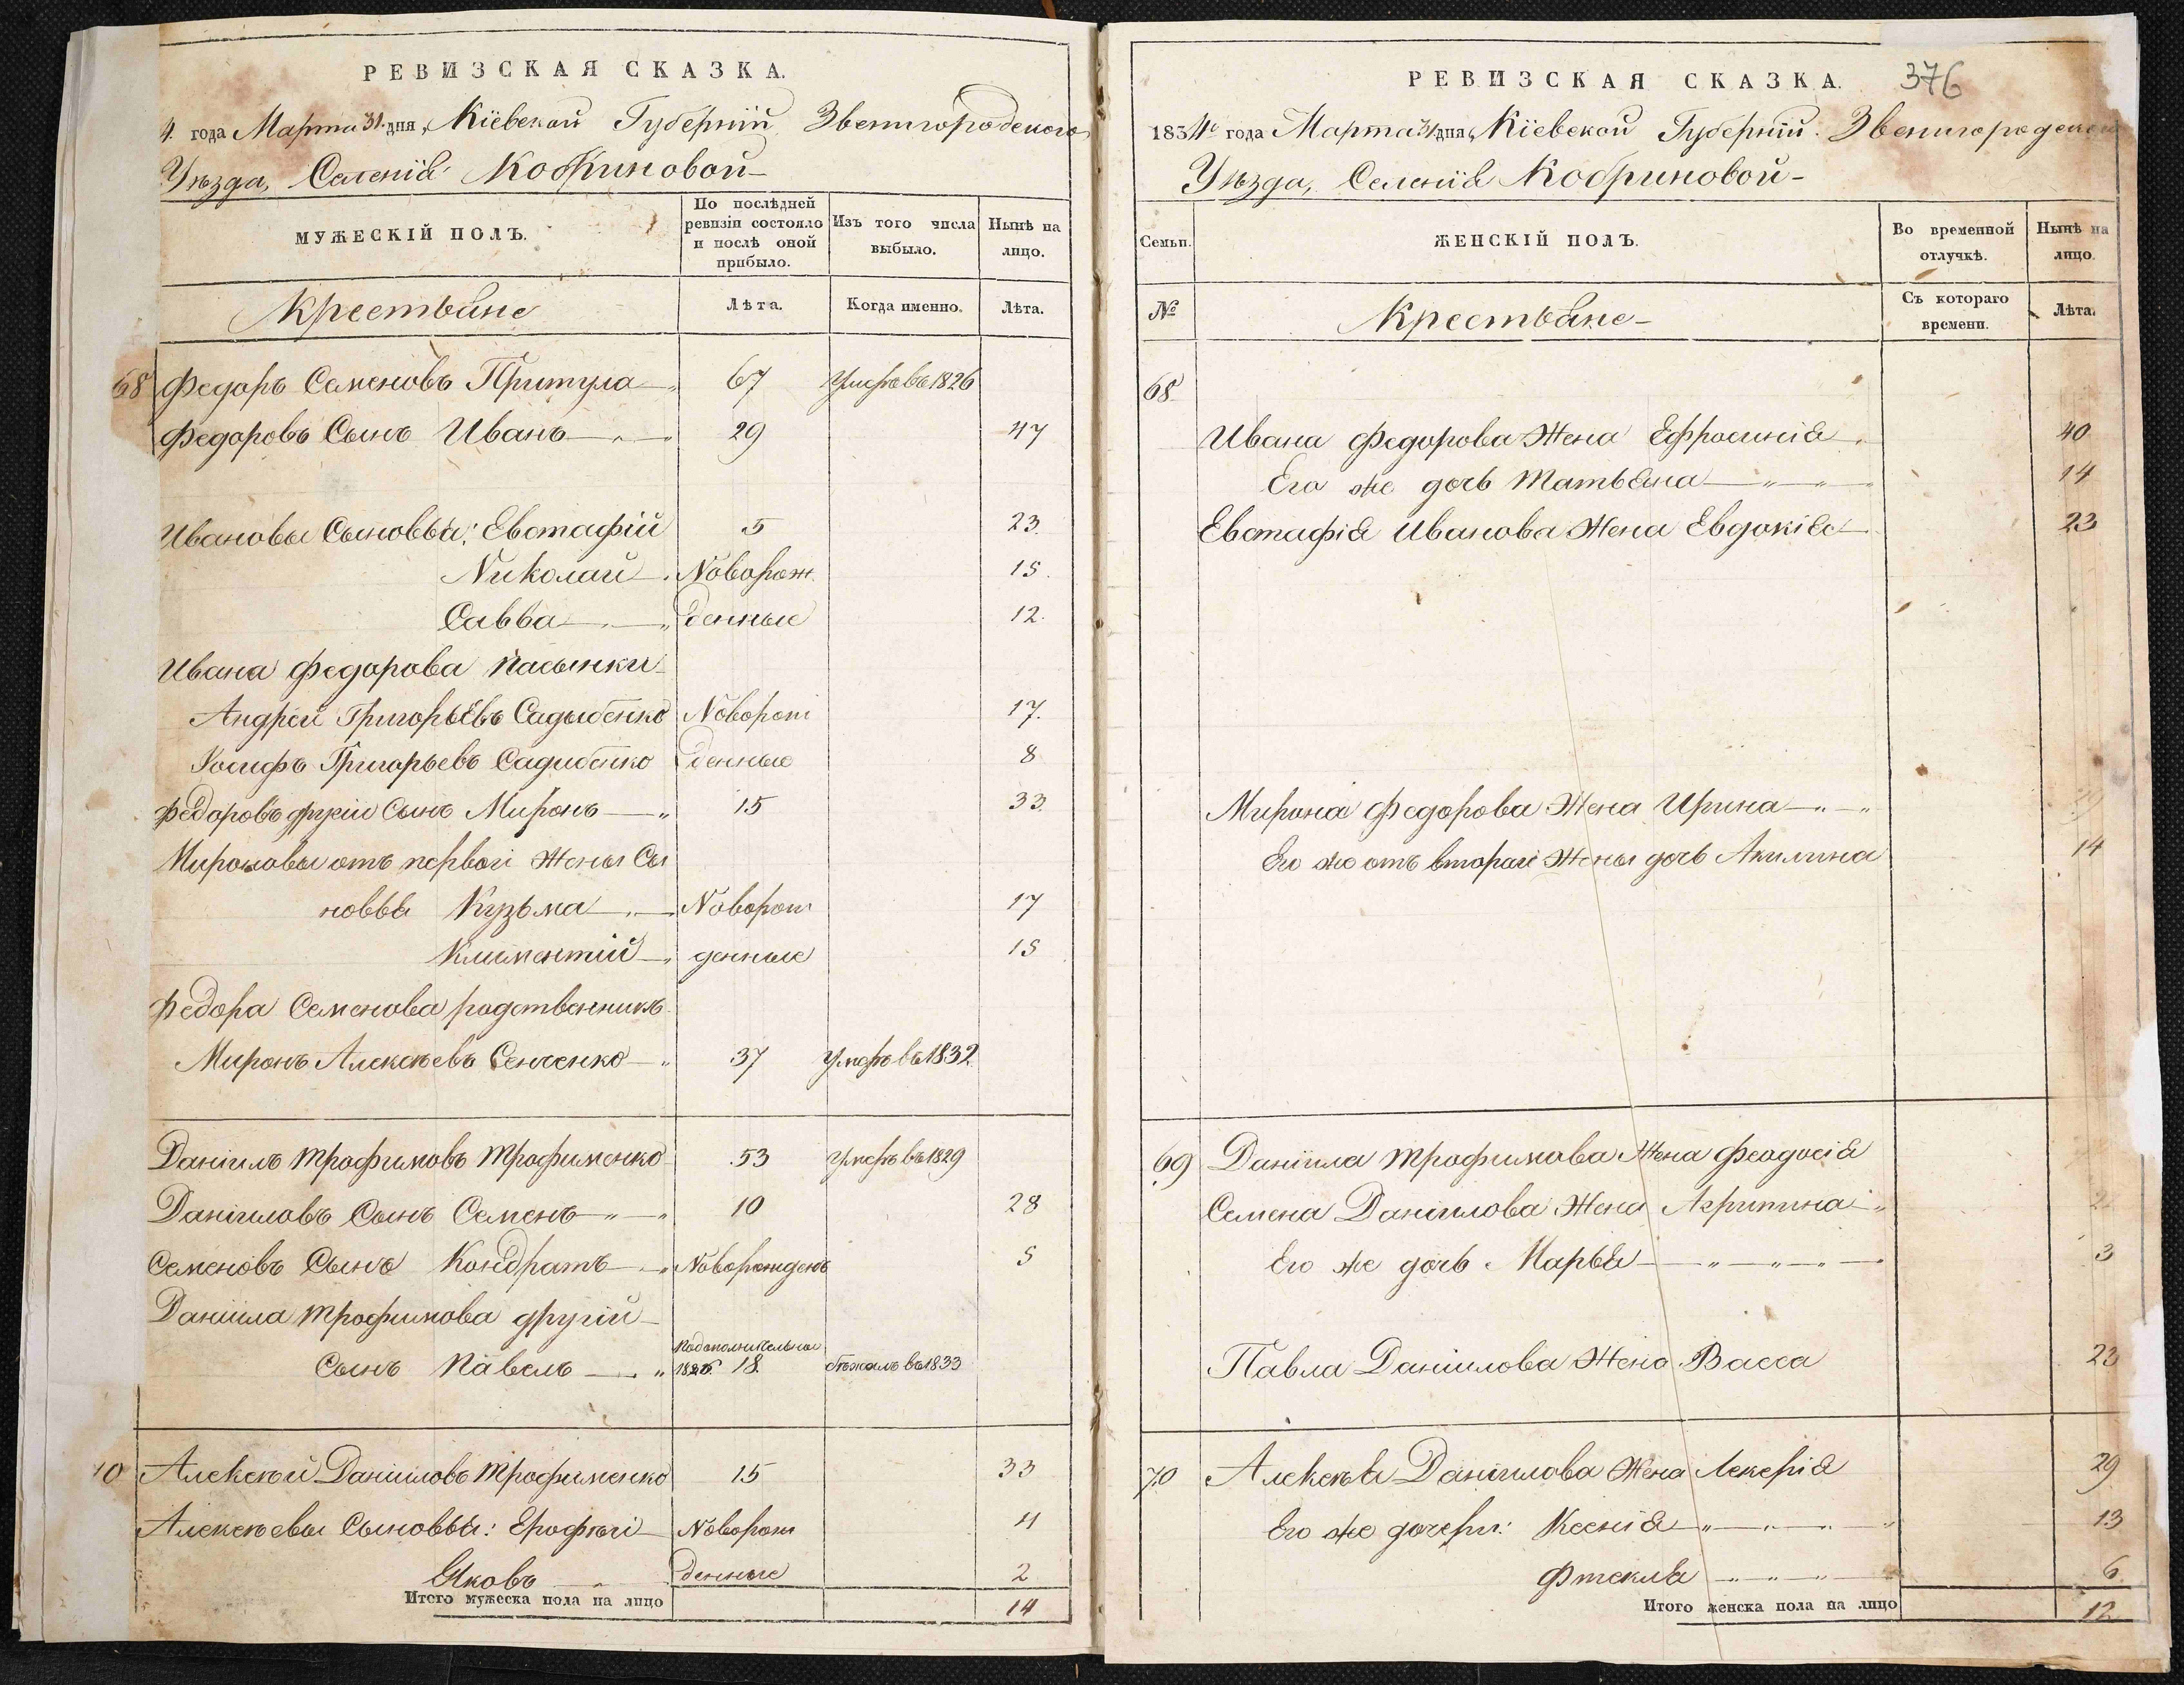 РЕВИЗСКАЯ СКАЗКА.
4. года Марта 31. дня, Кіевской Губерніи Звенигородского
Уѣзда, Селенія Кобриновой
МУЖЕСКІЙ ПОЛЪ.
По послѣдней ревизіи состояло и послѣ оной прибыло.
Изъ того числа выбыло.
Нынѣ на лицо.
Крестьяне
Лѣта.
Когда именно.
Лѣта.
68 Федоръ Семеновъ Притула 67 Умеръ въ 1826
Федоровъ Сынъ Иванъ 29 47
Ивановы Сыновья: Евстафій 5 23.
Николай Новорож 15.
Савва денные 12.
Ивана Федорова пасынки
Андрей Григорьевъ Садыбенко Новорож 17.
Іосифъ Григорьевъ Садибенко денные 8
Федоровъ другій Сынъ Миронъ 15 33.
Мироновы отъ первой Жены Сы
новья Кузьма Новорож 17
Климентій денные 15
Федора Семенова родственникъ
Миронъ Алексѣевъ Сенченко 37 Умеръ въ 1832
Даніилъ Трофимовъ Трофименко 53 Умеръ въ 1829
Даніиловъ Сынъ Семенъ 10 28
Семеновъ Сынъ Кондратъ Новорожденъ 5
Даніила Трофимова другій
Сынъ Павелъ 18. бѣжалъ въ 1833
70 Алексѣй Даніиловъ Трофименко 15 33
Алексѣевы Сыновья: Ерофѣй Новорож 4
Яковъ денные 2
Итого мужеска пола на лицо 14
РЕВИЗСКАЯ СКАЗКА.
376
1834го года Марта 31 дня, Кіевской Губерніи Звенигородского
Уѣзда, Селенія Кобриновой
Семьи.
ЖЕНСКІЙ ПОЛЪ.
Во временной отлучкѣ.
Нынѣ на лицо.
№
Крестьяне
Съ котораго времени.
Лѣта.
68
Ивана Федорова Жена Ефросинія 40
Его же дочь Татьяна 14
Евстафія Иванова Жена Евдокія 23
Мирона Федорова Жена Ирина
Его же отъ второй Жены дочь Акилина 14
69 Даніила Трофимова Жена Феодосія
Семена Даніилова Жена Агрипина
Его же дочь Марья 3
Павла Даніилова Жена Васса 23
70 Алексѣя Даніилова Жена Лекерія 29
Его же дочери: Ксенія 13
Фтекла 6
Итого женска пола на лицо 12